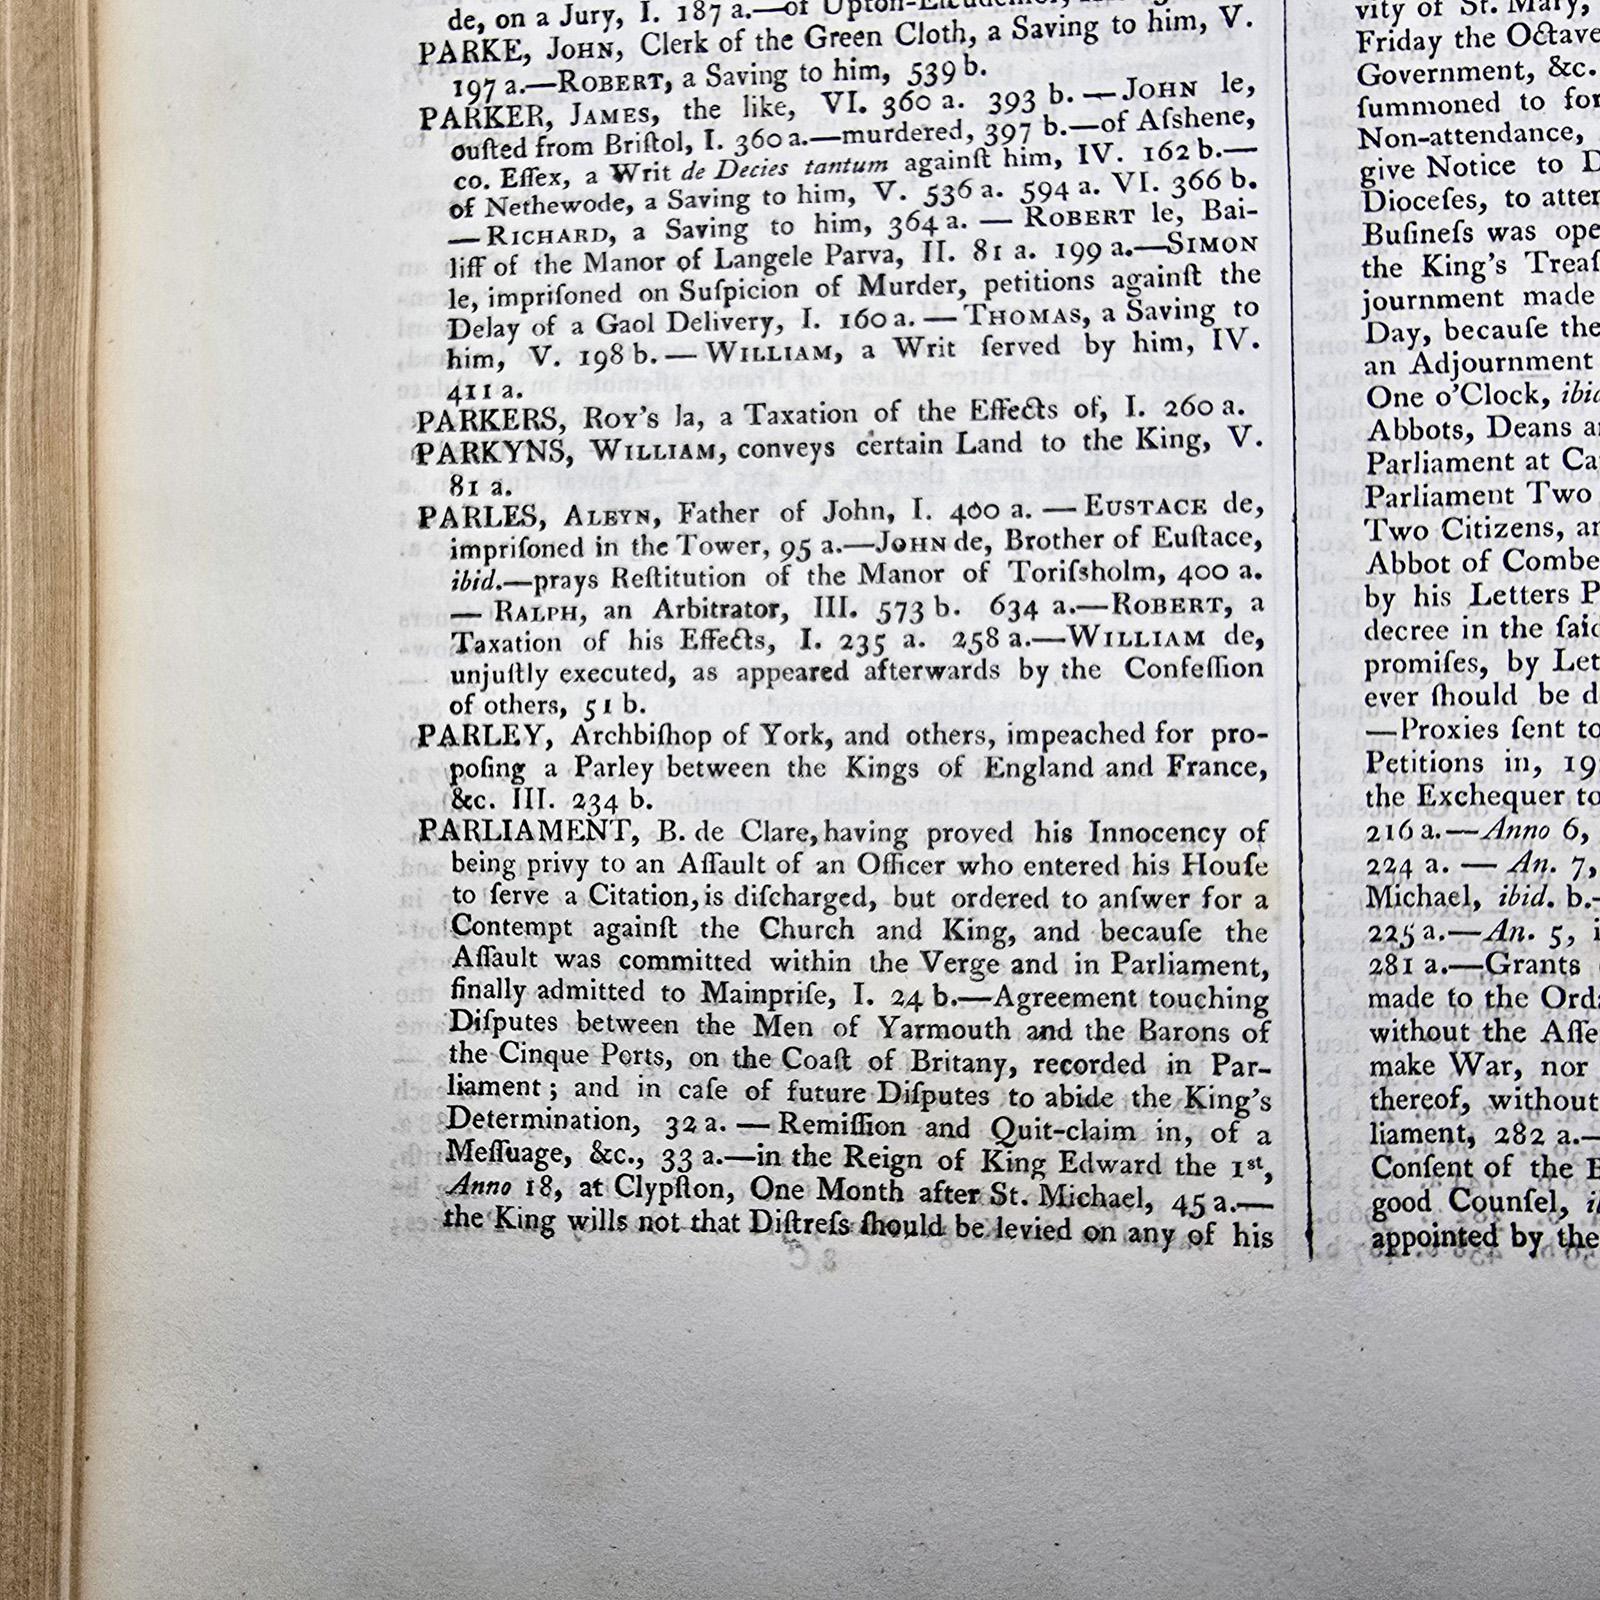 de, on a Jury, I. 187 a.—of
PARKE, JOHN, Clerk of the Green Cloth, a Saving to him, V.
197 a.—ROBERT, a Saving to him, 539 b.
PARKER, JAMES, the like, VI. 360 a. 393 b. — JOHN le,
ouſted from Briſtol, I. 360 a.—murdered, 397 b.—of Aſshene,
co. Eſſex, a Writ de Decies tantum againſt him, IV. 162 b.—
of Nethewode, a Saving to him, V. 536 a. 594 a. VI. 366 b.
— RICHARD, a Saving to him, 364 a. — ROBERT le, Bai-
liff of the Manor of Langele Parva, II. 81 a. 199 a.—SIMON
le, impriſoned on Suſpicion of Murder, petitions againſt the
Delay of a Gaol Delivery, I. 160 a. — THOMAS, a Saving to
him, V. 198 b. — WILLIAM, a Writ ſerved by him, IV.
411 a.
PARKERS, ROY'S la, a Taxation of the Effects of, I. 260 a.
PARKYNS, WILLIAM, conveys certain Land to the King, V.
81 a.
PARLES, ALEYN, Father of John, I. 400 a. — EUSTACE de,
impriſoned in the Tower, 95 a.—JOHN de, Brother of Euſtace,
ibid.—prays Reſtitution of the Manor of Toriſsholm, 400 a.
— RALPH, an Arbitrator, III. 573 b. 634 a.—ROBERT, a
Taxation of his Effects, I. 235 a. 258 a.—WILLIAM de,
unjuſtly executed, as appeared afterwards by the Confeſſion
of others, 51 b.
PARLEY, Archbiſhop of York, and others, impeached for pro-
poſing a Parley between the Kings of England and France,
&c. III. 234 b.
PARLIAMENT, B. de Clare, having proved his Innocency of
being privy to an Aſſault of an Officer who entered his Houſe
to ſerve a Citation, is diſcharged, but ordered to anſwer for a
Contempt againſt the Church and King, and becauſe the
Aſſault was committed within the Verge and in Parliament,
finally admitted to Mainpriſe, I. 24 b.—Agreement touching
Diſputes between the Men of Yarmouth and the Barons of
the Cinque Ports, on the Coaſt of Britany, recorded in Par-
liament; and in caſe of future Diſputes to abide the King's
Determination, 32 a. — Remiſſion and Quit-claim in, of a
Meſſuage, &c., 33 a.—in the Reign of King Edward the 1st,
Anno 18, at Clypſton, One Month after St. Michael, 45 a.—
the King wills not that Diſtreſs ſhould be levied on any of his
vity of St. Mary,
Friday the Octave
Government, &c.
ſummoned to for
Non-attendance,
give Notice to D
Dioceſes, to atten
Buſineſs was ope
the King's Treaſ
journment made
Day, becauſe the
an Adjournment
One o'Clock, ibid
Abbots, Deans a
Parliament at Ca
Parliament Two
Two Citizens, an
Abbot of Combe
by his Letters P
decree in the ſaid
promiſes, by Let
ever ſhould be d
—Proxies ſent to
Petitions in, 19
the Exchequer to
216 a.—Anno 6,
224 a. — An. 7,
Michael, ibid. b.-
225 a.—An. 5, i
281 a.—Grants
made to the Orda
without the Aſſe
make War, nor
thereof, without
liament, 282 a.—
Conſent of the B
good Counſel, ib
appointed by the